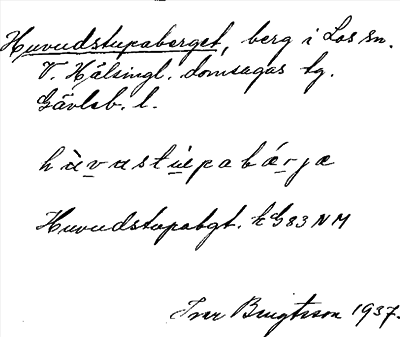 Huvudstupaberget, berg i Los sn.
V. Hälsingl. domsagas tg.
Gävleb. l.
hùvustùpabár̲jæ
Huvudstupabgt. K G83 NM
Ivar Bengtsson 1937.